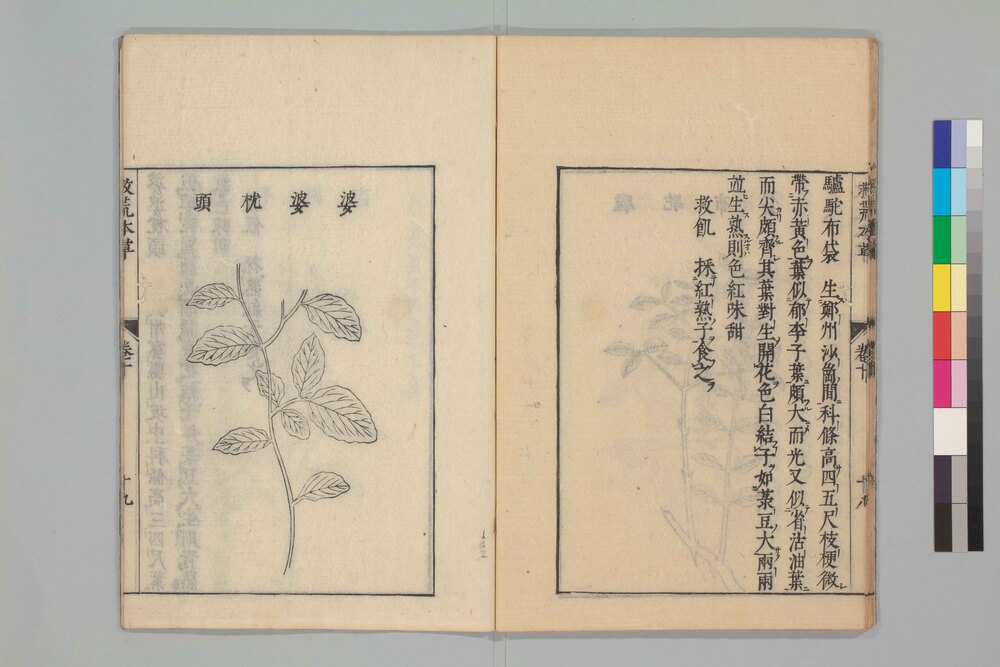 驢駝布袋　生鄭州沙崗間科條高四五尺枝梗微
帶赤黃色葉似郁李子葉頗大而光又似省沽油葉
而尖頗齊其葉對生開花色白結子如菉豆大兩兩
並生熟則色紅味甜
救飢　採紅熟子食之
婆婆枕頭
救荒本草
卷十
十九